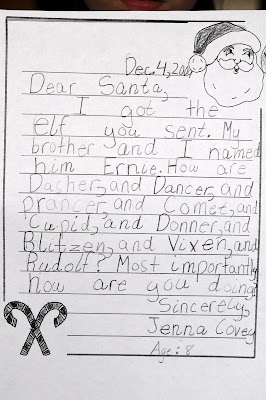 Dec. 4, 200
Dear Santa,
I got the
elf you sent. My
brother and I named
him Ernie. How are
Dasher, and Dancer, and
prancer, and Comet, and
Cupid, and Donner, and
Blitzen, and Vixen, and
Rudolf? Most importantly
how are you doing?
Sincerely,
Jenna Covey
Age: 8